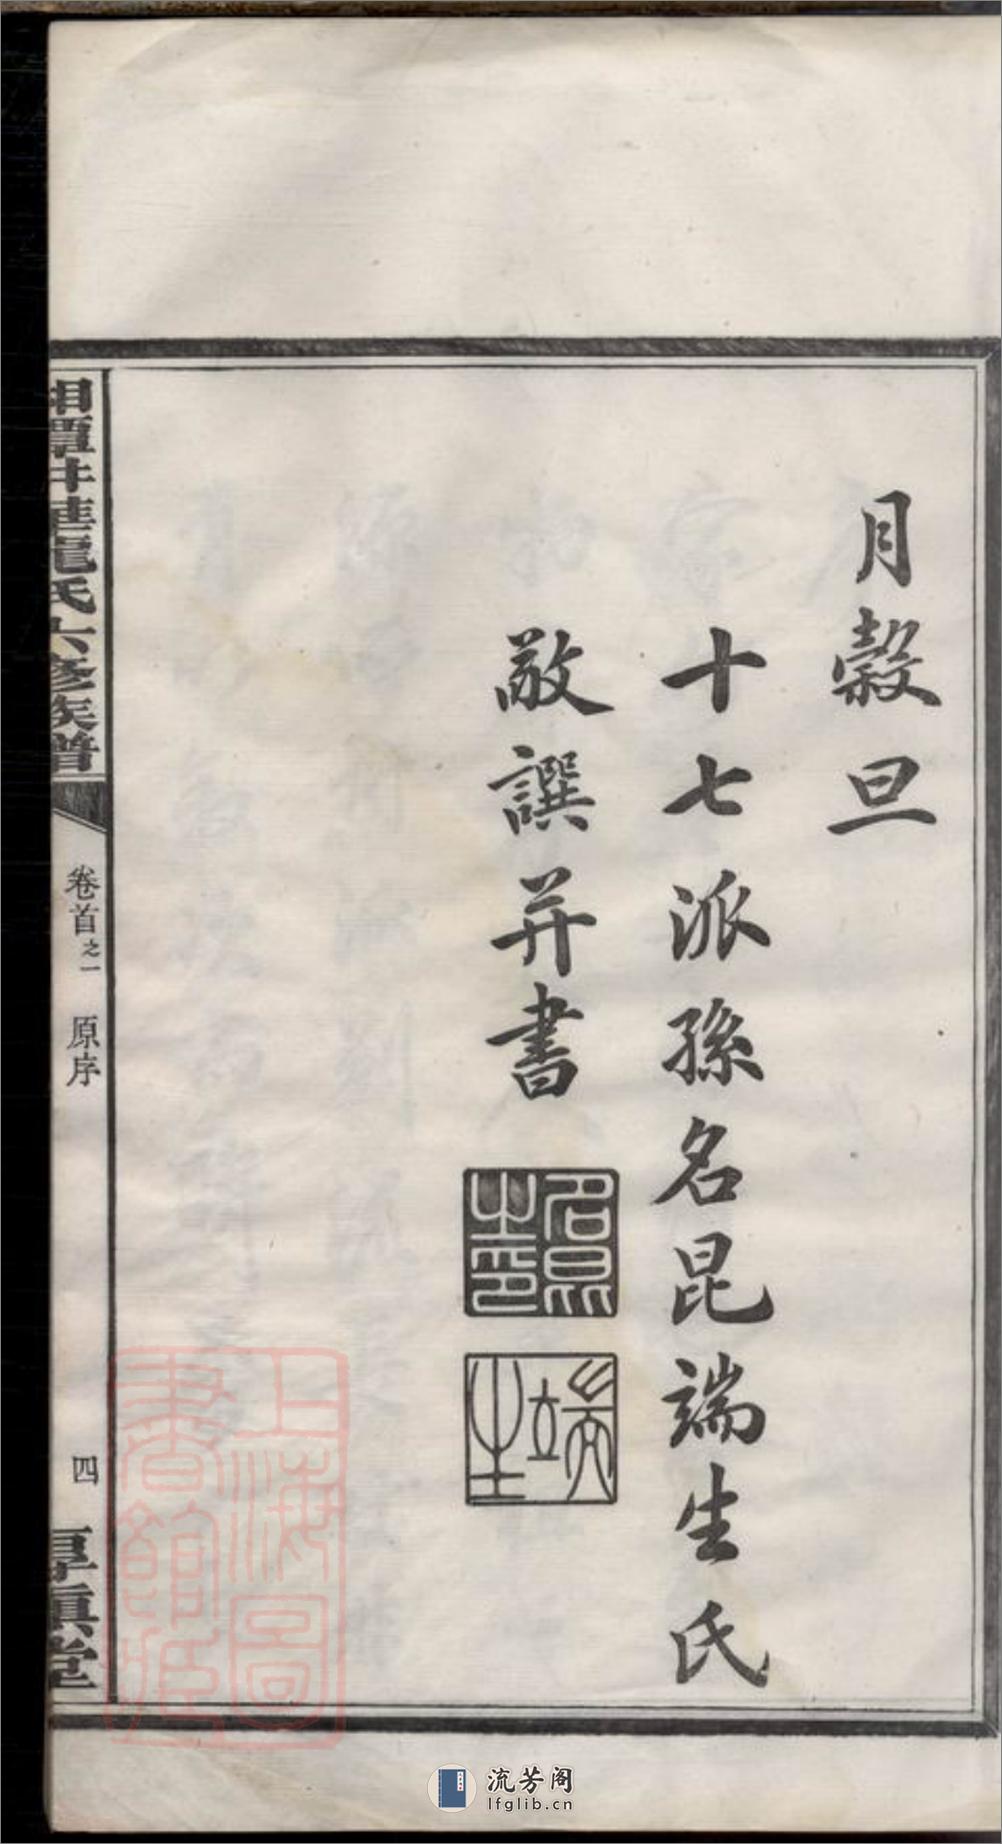 月穀旦
十七派孫名昆端生氏
敬譔并書
名昆之印
端生
湘潭井灣龍氏六修族譜
卷首之一 原序
四
厚慎堂
上海圖書館藏
流芳阁
lfglib.cn